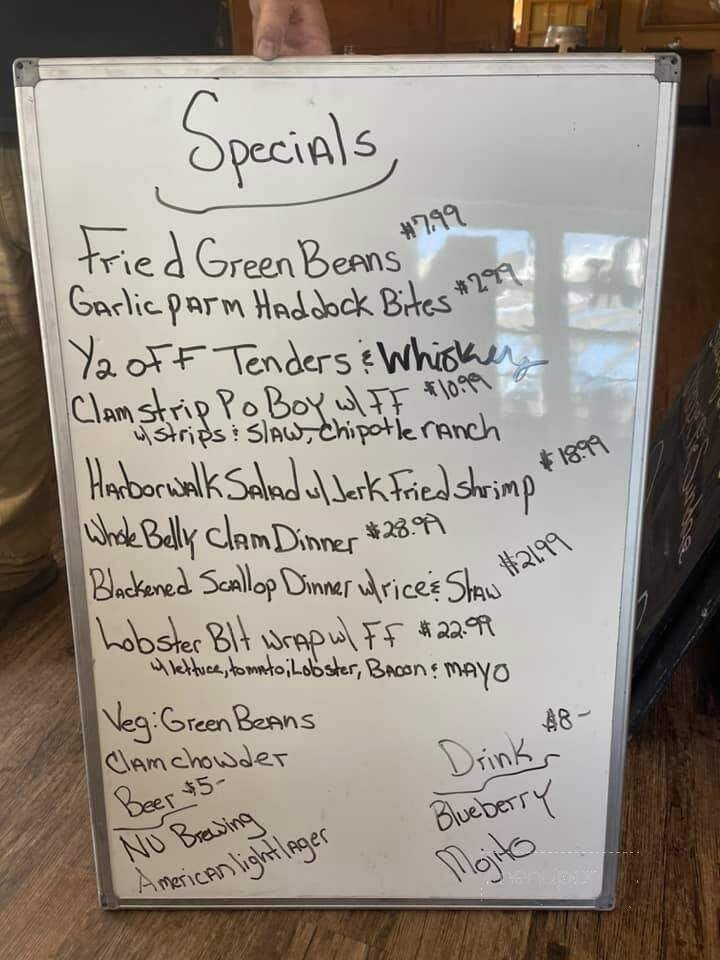 Specials
Fried Green Beans $7.99
Garlic parm Haddock Bites
1/2 off Tenders & Whiskey
Clam strip Po Boy w/ FF $10.99
w/ strips & Slaw, Chipotle ranch
Harborwalk Salad w/ Jerk fried shrimp $18.99
Whole Belly Clam Dinner $28.99
Blackened Scallop Dinner w/ rice & Slaw $21.99
Lobster Blt wrap w/ FF $22.99
w/ lettuce, tomato, Lobster, Bacon & mayo
Veg: Green Beans
Clam chowder
Beer $5-
NU Brewing
American light lager
Drink $8-
Blueberry
Mojito